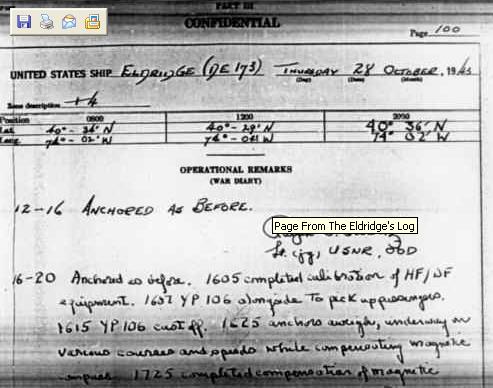 PART III
CONFIDENTIAL
Page 100
UNITED STATES SHIP ELDRIDGE (DE 173) THURSDAY 28 OCTOBER, 1943
(Day) (Date) (Month)
Zone description +4
Position 0800 1200 2000
Lat. 40° - 36' N 40° - 29' N 40° 36' N
Long. 74° - 02' W 74° - 04' W 74° 02' W
OPERATIONAL REMARKS
(WAR DIARY)
12-16 ANCHORED AS BEFORE.
Page From The Eldridge's Log
Lt. (jg), USNR, OOD
16-20 Anchored as before. 1605 completed calibration of HF/DF
equipment. 1607 YP 106 alongside to pick up passengers.
1615 YP 106 cast off. 1625 anchors aweigh, underway on
various courses and speeds while compensating magnetic
compass. 1725 completed compensation of magnetic